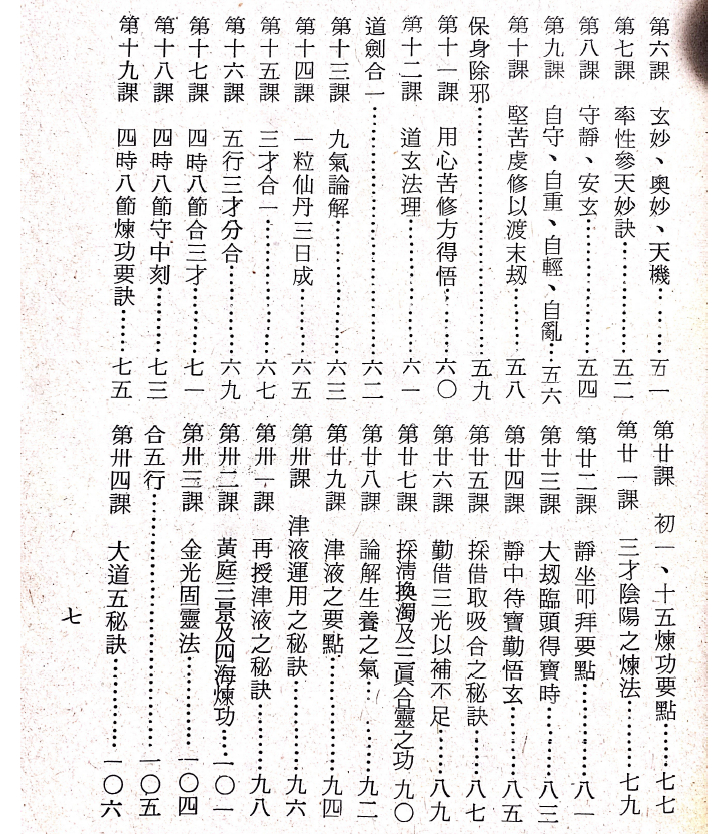 第六課　玄妙、奧妙、天機………五一
第七課　率性參天妙訣…………五二
第八課　守靜、安玄……………五四
第九課　自守、自重、自輕、自亂…五六
第十課　堅苦虔修以渡末刼……五八
保身除邪………………………五九
第十一課　用心苦修方得悟……六〇
第十二課　道玄法理……………六一
道劍合一………………………六二
第十三課　九氣論解……………六三
第十四課　一粒仙丹三日成……六五
第十五課　三才合一……………六七
第十六課　五行三才分合………六九
第十七課　四時八節合三才……七一
第十八課　四時八節守中刻……七三
第十九課　四時八節煉功要訣……七五
第廿課　初一、十五煉功要點……七七
第廿一課　三才陰陽之煉法………七九
第廿二課　靜坐叩拜要點…………八一
第廿三課　大刼臨頭得寶時………八三
第廿四課　靜中待寶勤悟玄………八五
第廿五課　採借取吸合之秘訣……八七
第廿六課　勤借三光以補不足……八九
第廿七課　採淸換濁及三眞合靈之功　九〇
第廿八課　論解生養之氣…………九二
第廿九課　津液之要點……………九四
第卅課　津液運用之秘訣…………九六
第卅一課　再授津液之秘訣………九八
第卅二課　黃庭三景及四海煉功…一〇一
第卅三課　金光固靈法……………一〇四
合五行……………………………一〇五
第卅四課　大道五秘訣……………一〇六
七